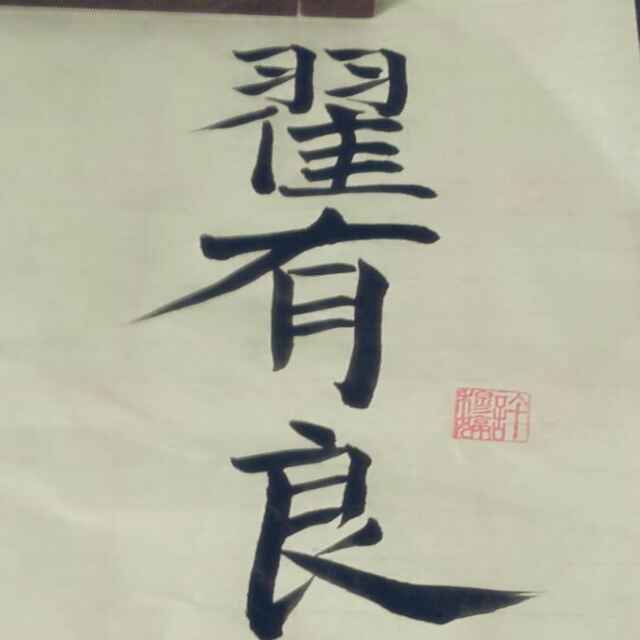 翟有良